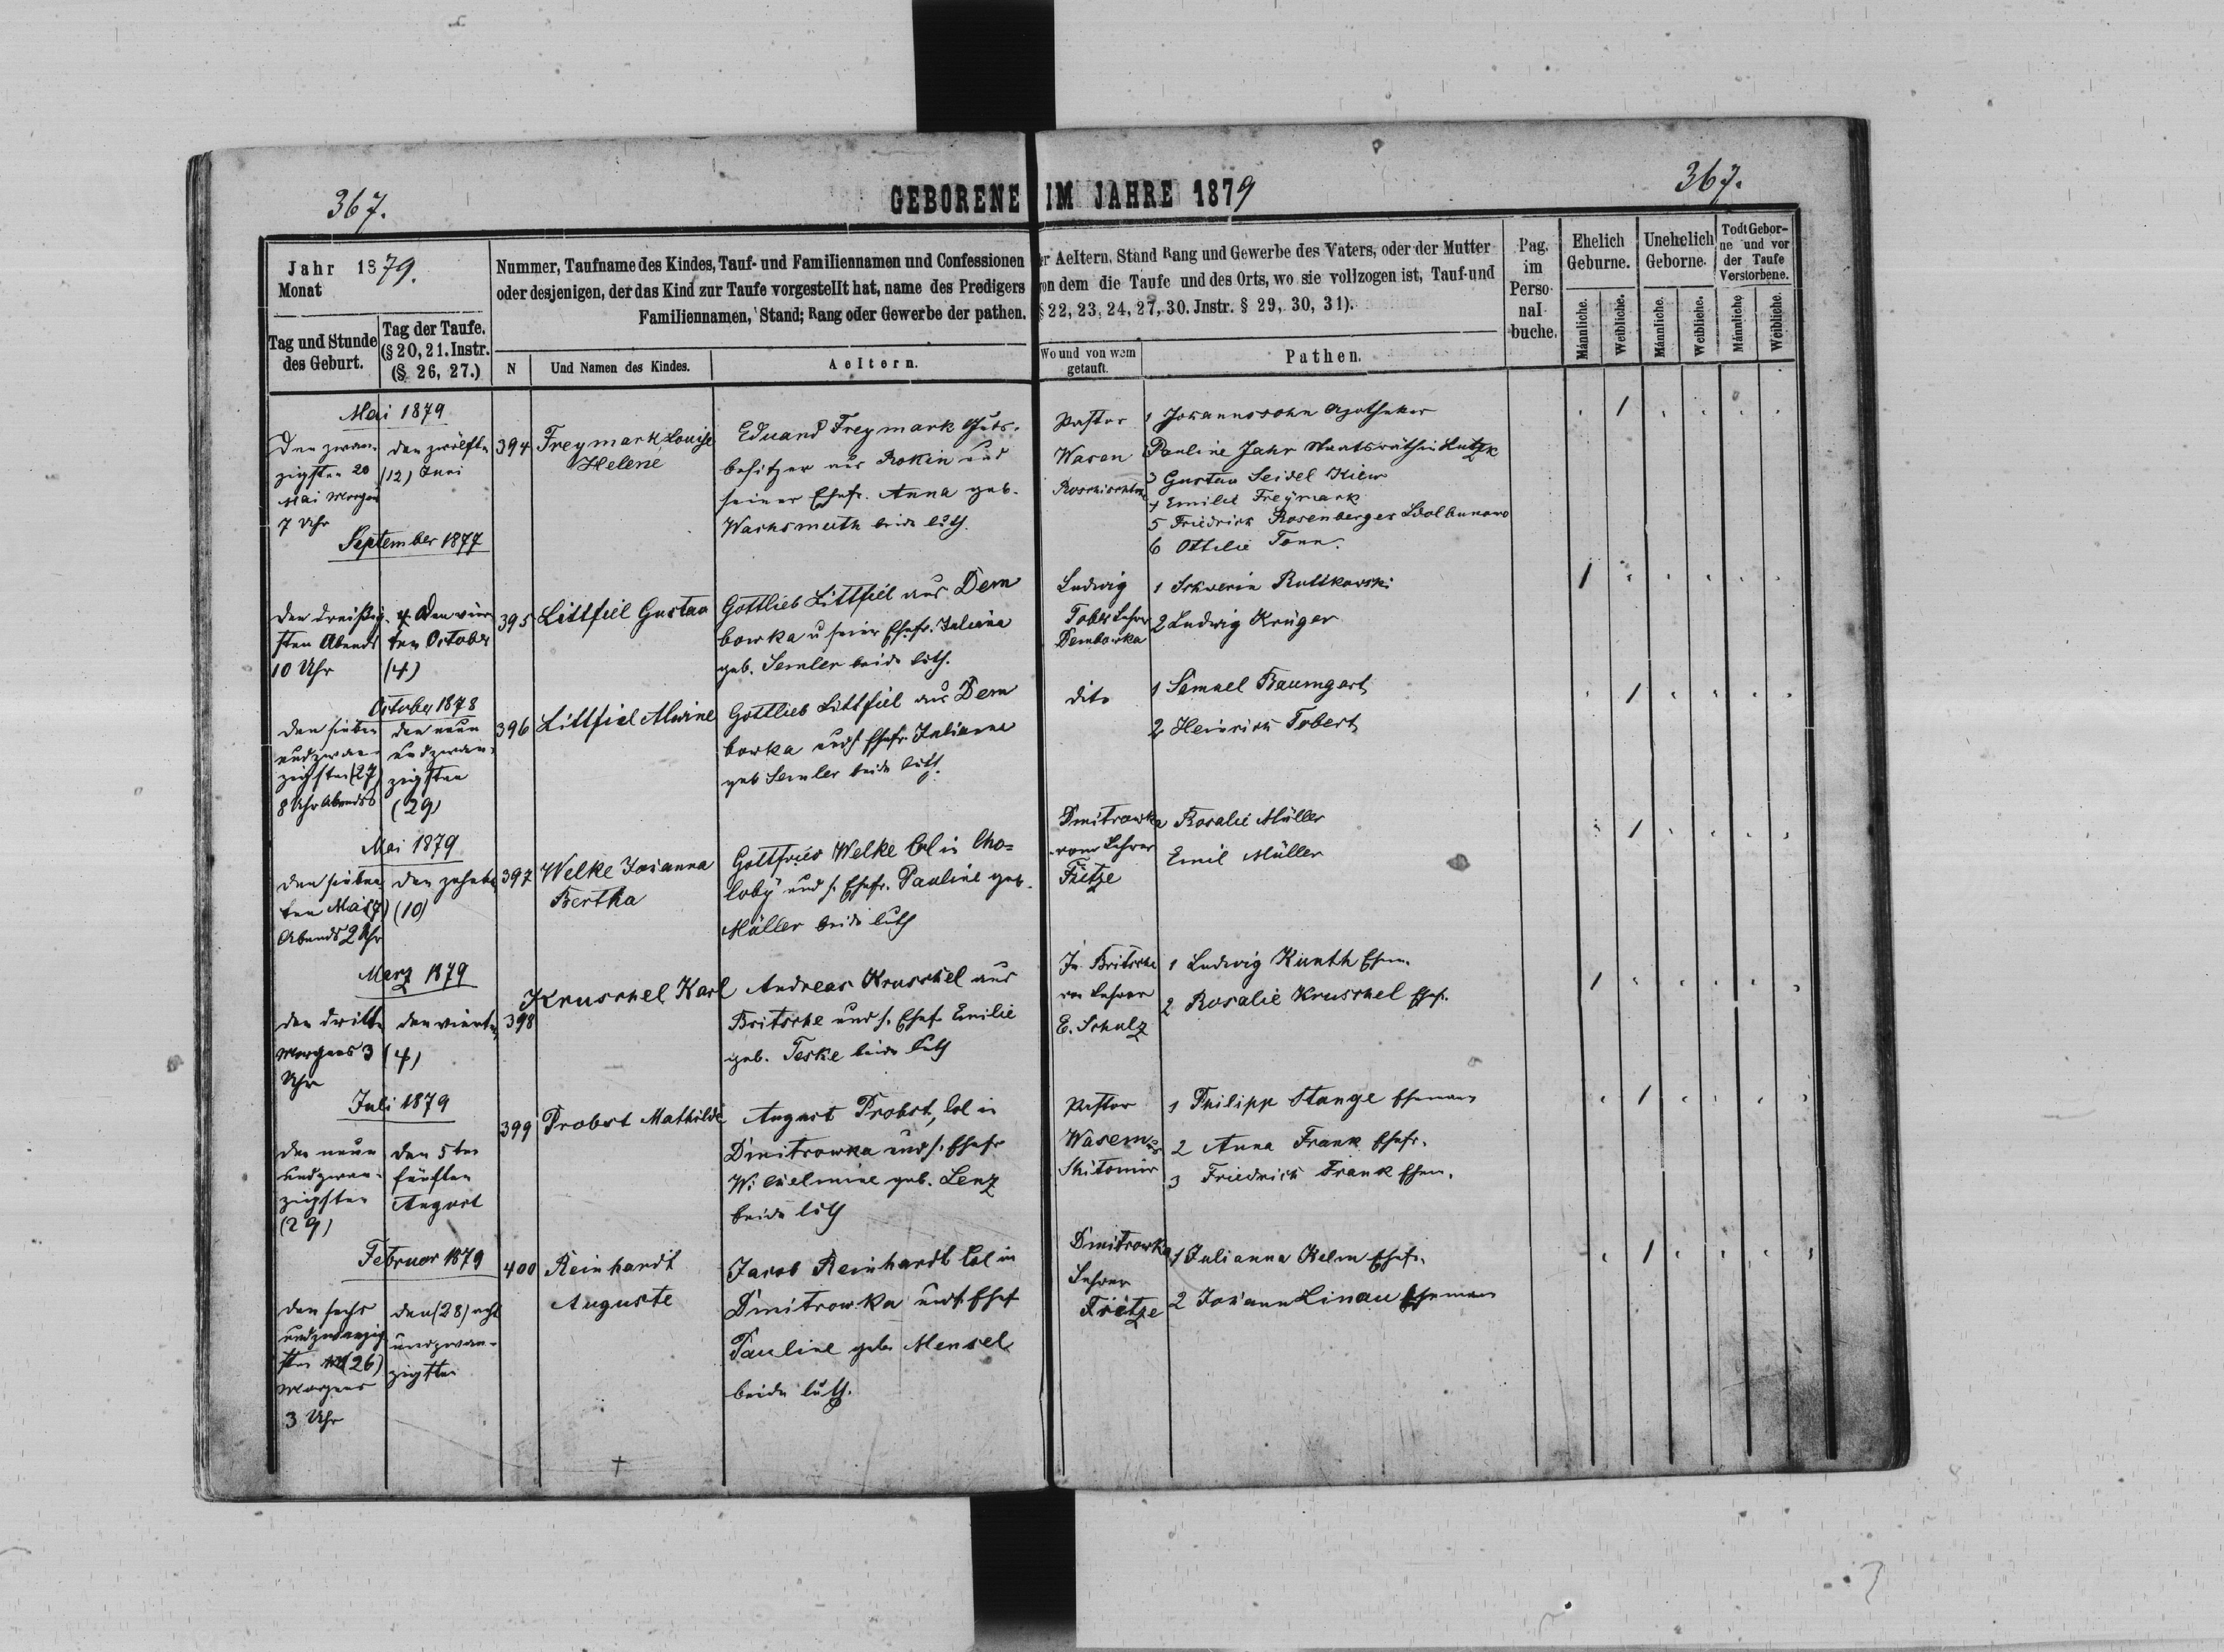 367.
GEBORENE IM JAHRE 1879
367.
Jahr 1879.
Monat
Tag und Stunde des Geburt.
Tag der Taufe. (§ 20, 21. Instr. (§ 26, 27.)
Nummer, Taufname des Kindes, Tauf- und Familiennamen und Confessionen
oder desjenigen, der das Kind zur Taufe vorgestellt hat, name des Predigers
Familiennamen, Stand; Rang oder Gewerbe der pathen.
N
Und Namen des Kindes.
Aeltern.
er Aeltern, Stand Rang und Gewerbe des Vaters, oder der Mutter
von dem die Taufe und des Orts, wo sie vollzogen ist, Tauf-und
§ 22, 23, 24, 27, 30. Jnstr. § 29, 30, 31).
Wo und von wem getauft.
Pathen.
Pag. im Perso- nal- buche.
Ehelich Geburne.
Unehelich Geborne.
Todt Gebor- ne und vor der Taufe Verstorbene.
Männliche.
Weibliche.
Männliche.
Weibliche.
Männliche
Weibliche.
Mai 1879
Den zwan-
zigsten 20
Mai Morgen
7 Uhr
den zwölften
(12) Juni
394
Freymark Louise
Helene
Eduard Freymark Guts-
besitzer aus Rokin und
seiner Ehefr. Anna geb.
Wachsmuth beide luth.
Pastor
Wasem
Roschischtsche
1 Johannssohn Apotheker
Pauline Jahr Staatsräthin Lutzk
3 Gustav Seidel Kiew
4 Emilie Freymark
5 Friedrich Rosenberger Sdolbunowo
6 Ottilie Tonn.
1
September 1877
den dreißig-
sten Abends
10 Uhr
4 Den vier
ten October
(4)
395
Littfiel Gustav
Gottlieb Littfiel aus Dem
bowka u seiner Ehefr. Juliana
geb. Semler beide luth.
Ludwig
Lehrer
Dembowka
1 Schwerin Ruttkowski
2 Ludwig Krüger
1
October 1878
den sieben
undzwan-
zigsten (27)
8 Uhr Abends
den neun
undzwan-
zigsten
(29)
396
Littfiel Alwine
Gottlieb Littfiel aus Dem
bowka und s. Ehefr. Julianna
geb Semler beide luth.
dito
1 Samuel Baumgart
2 Heinrich Tobert
1
Mai 1879
den sieben
ten Mai (7)
Abends 2 Uhr
den zehnten
(10)
397
Welke Johanna
Bertha
Gottfried Welke Col in Cho-
loby und s. Ehefr. Pauline geb.
Müller beide luth
Dmitrowka
vom Lehrer
Fritze
Rosalie Müller
Emil Müller
1
Marz 1879
den dritten
Morgens 3
Uhr
den vierten
(4)
398
Kruschel Karl
Andreas Kruschel aus
Britsche und s. Ehef. Emilie
geb. Teske beide luth
In Britsche
von Lehrer
E. Schulz
1 Ludwig Kunth Ehem.
2 Rosalie Kruschel Ehef.
1
Juli 1879
den neun
undzwan-
zigsten
(29)
den 5ten
fünften
August
399
Probst Mathilde
August Probst, Col in
Dmitrowka und s. Ehefr
Wilhelmine geb. Lenz
beide luth
Pastor
Wasem
Shitomir
1 Philipp Stange Ehemann
2 Anna Frank Ehefr.
3 Friedrich Frank Ehem.
1
Februar 1879
den sechs
undzwanzig
sten (26)
Morgens
3 Uhr
den (28) acht
undzwan-
zigsten
400
Reinhardt
Auguste
Jacob Reinhardt Col in
Dmitrowka und s. Ehef
Pauline geb. Mensel
beide luth.
Dmitrowka
Lehrer
Fritze
1 Julianna Kelm Ehefr.
2 Johann Linau Ehemann
1